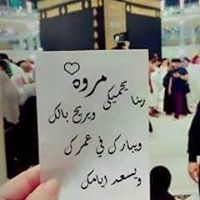 مروه
ربنا يحميكي ويريح بالك
ويبارك في عمرك
ويسعد ايامك